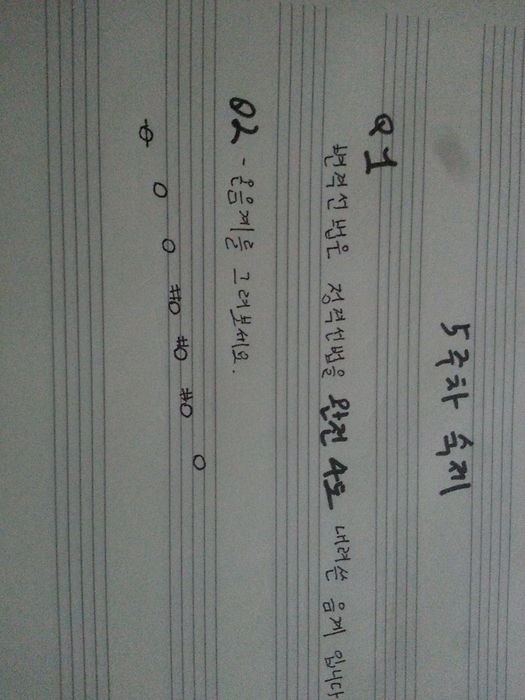 5주차 숙제
Q1
변격선법은 정격선법을 완전 4도 내려쓴 음계 입니다
Q2 - 온음계를 그려보세요.